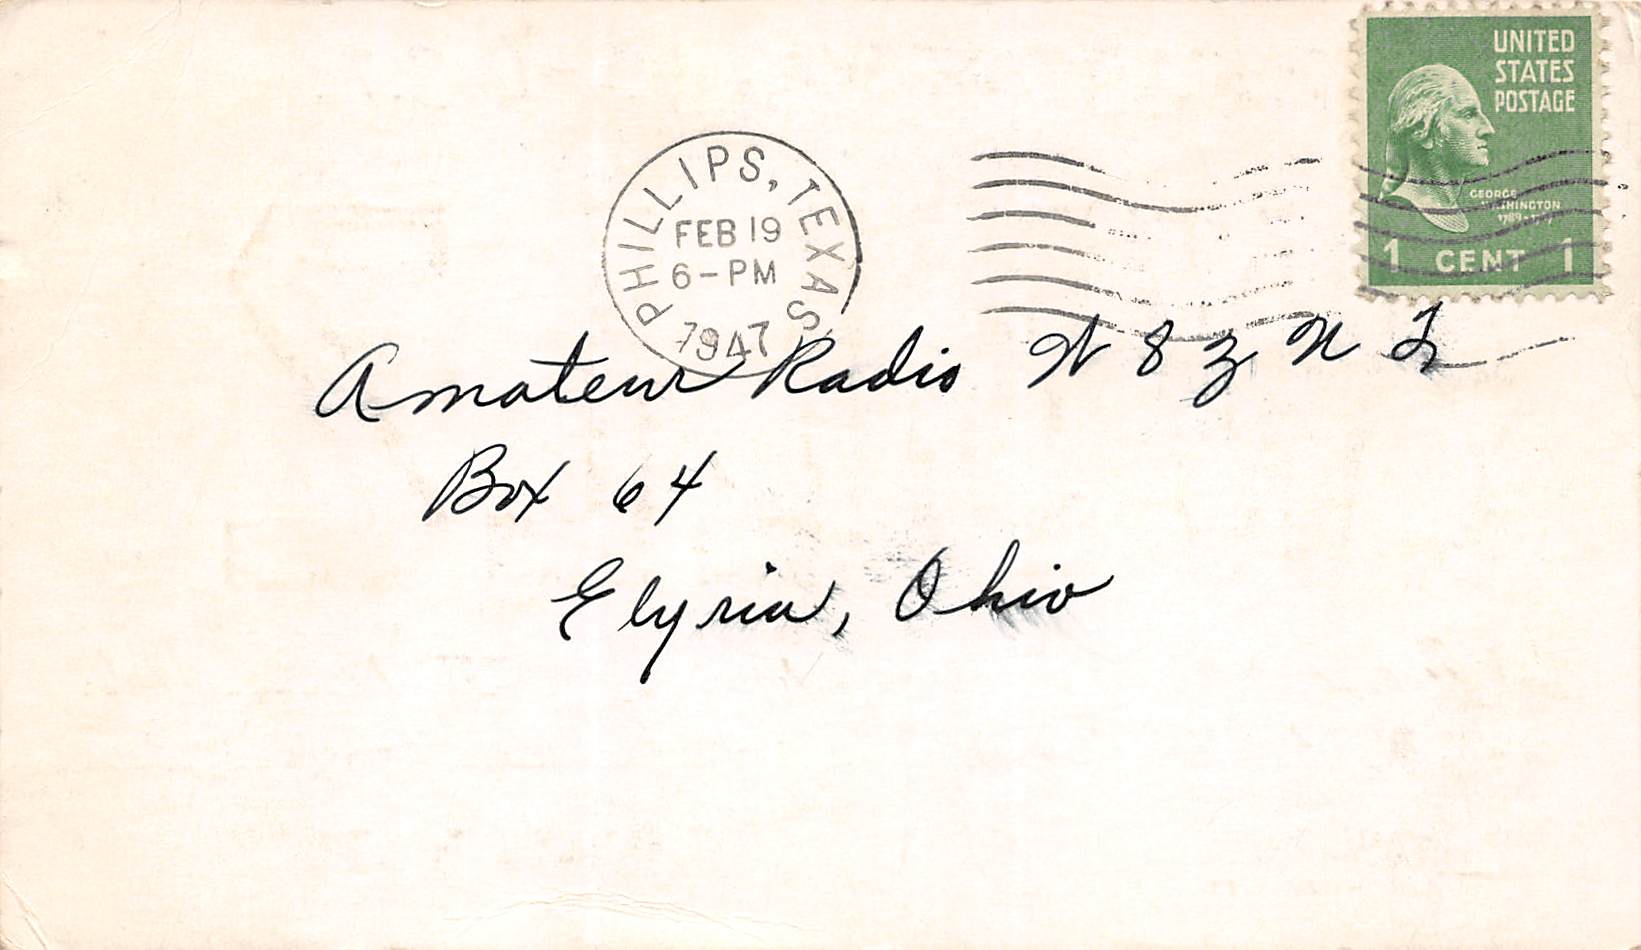 UNITED
STATES
POSTAGE
GEORGE
WASHINGTON
1 CENT 1
PHILLIPS, TEXAS
FEB 19
6-PM
1947
Amateur Radio W 8 Z N
Box 64
Elyria, Ohio